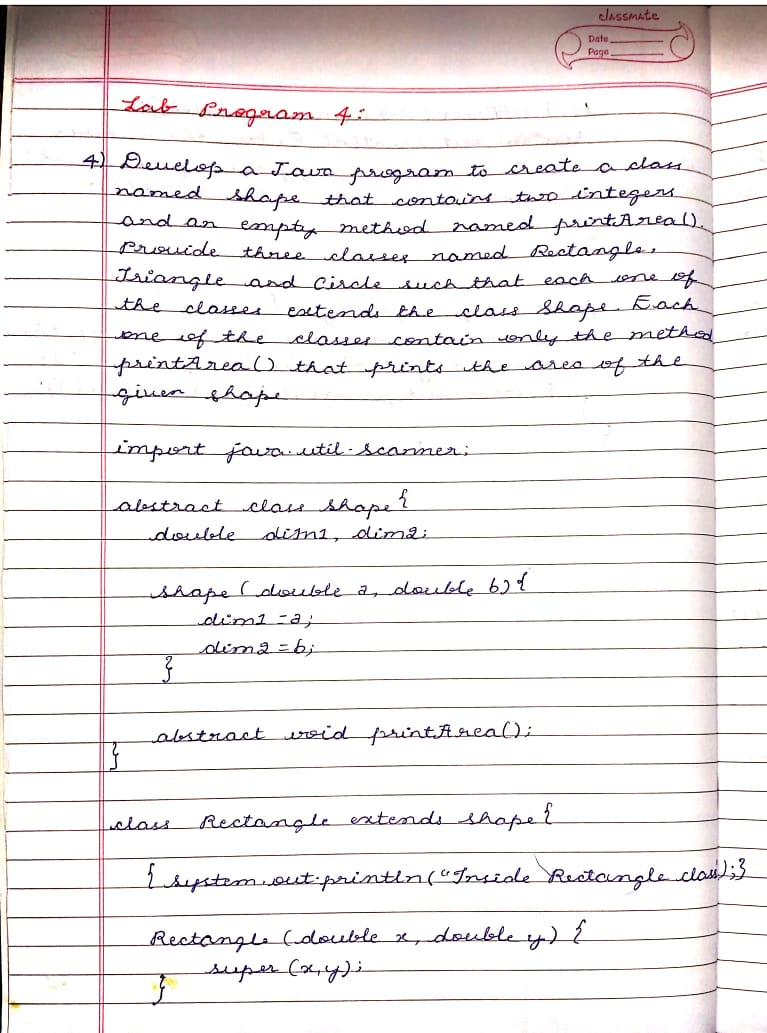 classmate
Date
Page
Lab Program 4:
4) Develop a Java program to create a class
named shape that contains two integers
and an empty method named printArea().
Provide three classes named Rectangle,
Triangle and Circle such that each one of
the classes extends the class Shape. Each
one of the classes contain only the method
printArea() that prints the area of the
given shape
import java.util.scanner;
abstract class shape{
double dim1, dim2;
shape (double a, double b){
dim1 = a;
dim2 = b;
}
abstract void printArea();
}
class Rectangle extends shape{
{ system.out.println("Inside Rectangle class);}
Rectangle (double x, double y) {
super (x,y);
}